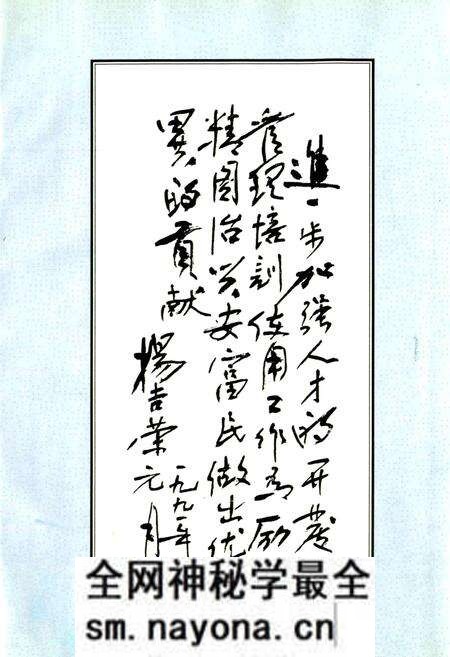 進一步加强人才的开发
管理培训使用工作为励
精图治兴安富民做出优
異的貢献
一九九一年
楊吉荣元月
全网神秘学最全
sm.nayona.cn